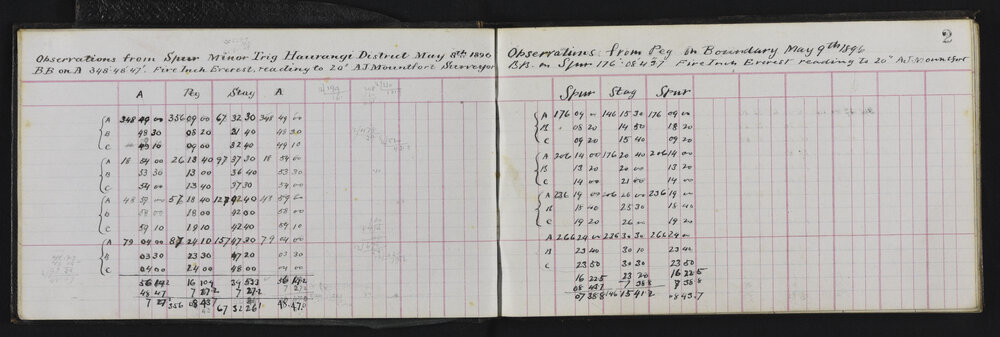 Observations from Spur Minor Trig Haurangi District May 8th 1896
BB on A 348°48'47". Five Inch Everest, reading to 20" AJ Mountfort Surveyor
A Peg Stag A
A 348 49 00 356 09 00 67 32 30 348 49 00
B 48 30 08 20 31 40 48 30
C 49 10 09 00 32 40 49 10
A 18 54 00 26 13 40 97 37 30 18 54 00
B 53 30 13 00 36 40 53 30
C 54 00 13 40 37 30 54 00
A 48 59 00 18 40 42 40
B 58 00 18 00 42 00 58 00
C 59 10 19 10 42 40 59 10
A 79 04 00 24 10 157 47 30 79 04 00
B 03 30 23 30 47 20 03 30
C 04 00 24 00 48 00 04 00
16 10 4
48 47 7 27 2 7 27 2
356 08 43 7 67 32 26
2
Observations from Peg on Boundary May 9th 1896
BB. on Spur 176°08'43.7 Five Inch Everest reading to 20" AJ Mountfort
Spur Stag Spur
A 176 09 00 146 15 30 176 09 00
B 08 20 14 50 18 20
C 09 20 15 40 09 20
A 206 14 00 176 20 40 206 14 00
B 13 20 20 00 13 20
C 14 00 21 00 14 00
A 236 19 00 206 26 00 236 19 00
B 18 40 25 30 18 40
C 19 20 26 00 19 20
A 266 24 00 236 30 30 266 24 00
B 23 40 30 10 23 40
C 23 50 30 30 23 50
16 22 5 23 20 16 22 5
08 43.7 7 38 8 7 38 8
07 38 8 146 15 41 2 08 43.7